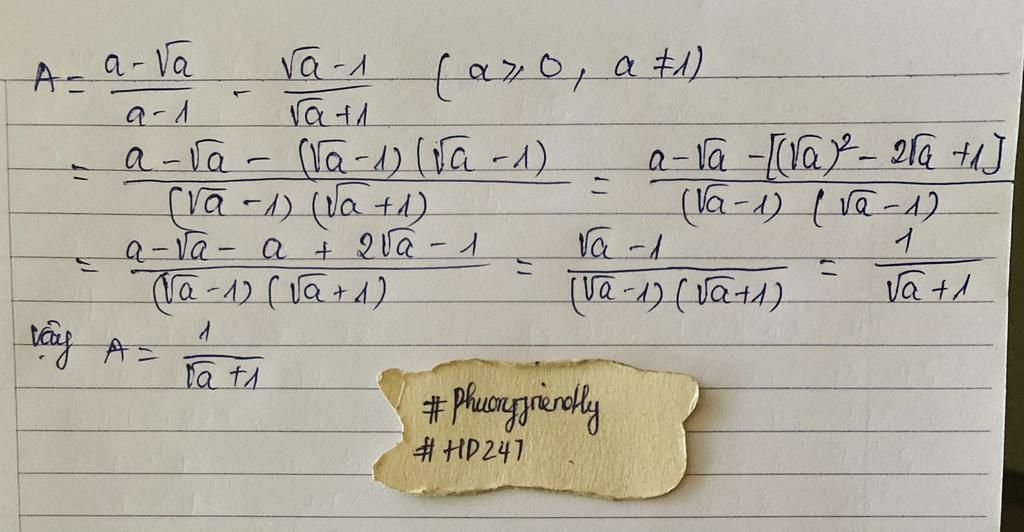 A = \frac{a - \sqrt{a}}{a - 1} - \frac{\sqrt{a} - 1}{\sqrt{a} + 1} ( a ⩾ 0 , a ≠ 1)
= \frac{a - \sqrt{a} - (\sqrt{a} - 1) (\sqrt{a} - 1)}{(\sqrt{a} - 1) (\sqrt{a} + 1)} = \frac{a - \sqrt{a} - [(\sqrt{a})^2 - 2\sqrt{a} + 1]}{(\sqrt{a} - 1) (\sqrt{a} - 1)}
= \frac{a - \sqrt{a} - a + 2\sqrt{a} - 1}{(\sqrt{a} - 1) (\sqrt{a} + 1)} = \frac{\sqrt{a} - 1}{(\sqrt{a} - 1) (\sqrt{a} + 1)} = \frac{1}{\sqrt{a} + 1}
Vậy A = \frac{1}{\sqrt{a} + 1}
#Phuongfriendly
#HD247